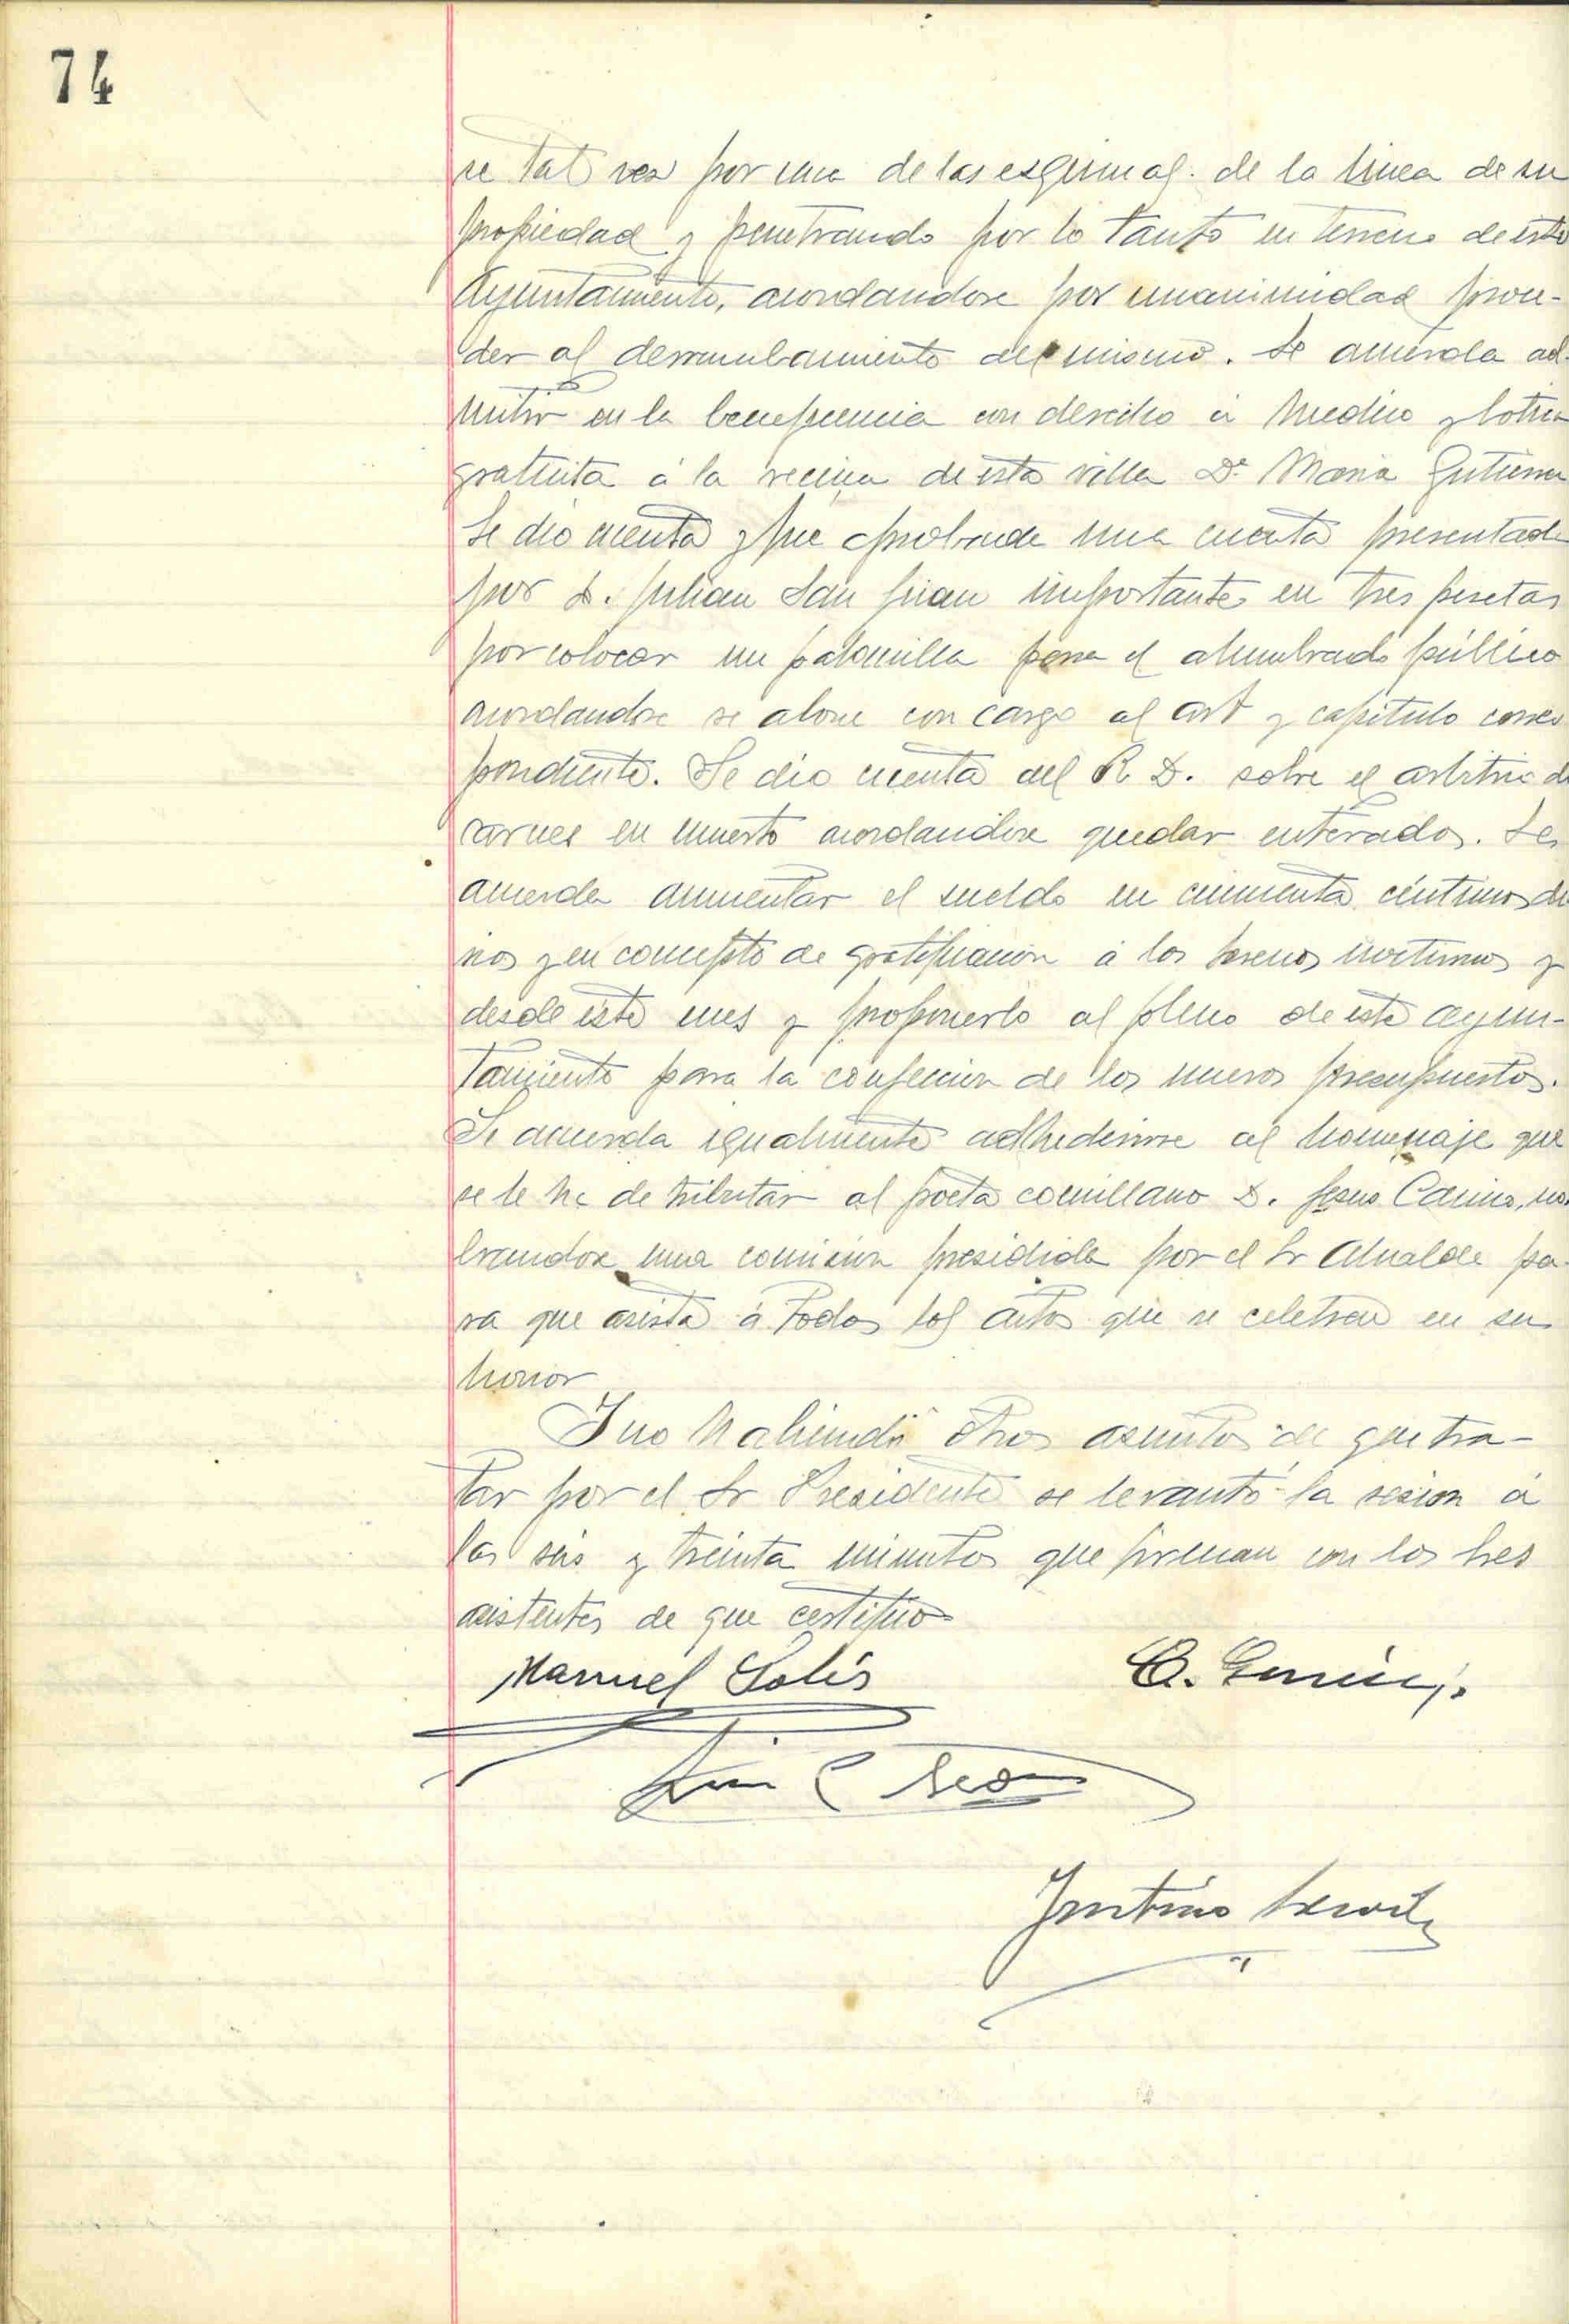 74
se tal vez por una de las esquinas de la linea de su
propiedad y penetrando por lo tanto en terreno de este
Ayuntamiento, acordandose por unanimidad proce-
der al derrumbamiento del mismo. Se acuerda ad-
mitir en la beneficencia con derecho a Medico y botica
gratuita á la vecina de esta villa Dª Maria Gutierrez
Se dio cuenta y fue aprobada una cuenta presentada
por D. Julian San Juan importante en tres pesetas
por colocar un palomilla para el alumbrado público
acordandose se abone con cargo al art y capitulo corres
pondiente. Se dio cuenta del R D. sobre el arbitrio de
carnes en muerto acordandose quedar enterados. Se
acuerda aumentar el sueldo en cincuenta céntimos dia
rios y en concepto de gratificacion á los serenos nocturnos y
desde este mes y proponerlo al pleno de este ayun-
tamiento para la confeccion de los nuevos presupuestos.
Se acuerda igualmente adhederirse al homenaje que
se le ha de tributar al poeta comillano D. Jesus Cancio, nom
brandose una comision presidida por el Sr Alcalde pa-
ra que asista á todos los actos que se celebran en su
honor
Y no habiendo otros asuntos de que tra-
tar por el Sr Presidente se levantó la sesion á
las seis y treinta minutos que firman con los tres
asistentes de que certifico
Manuel Solís